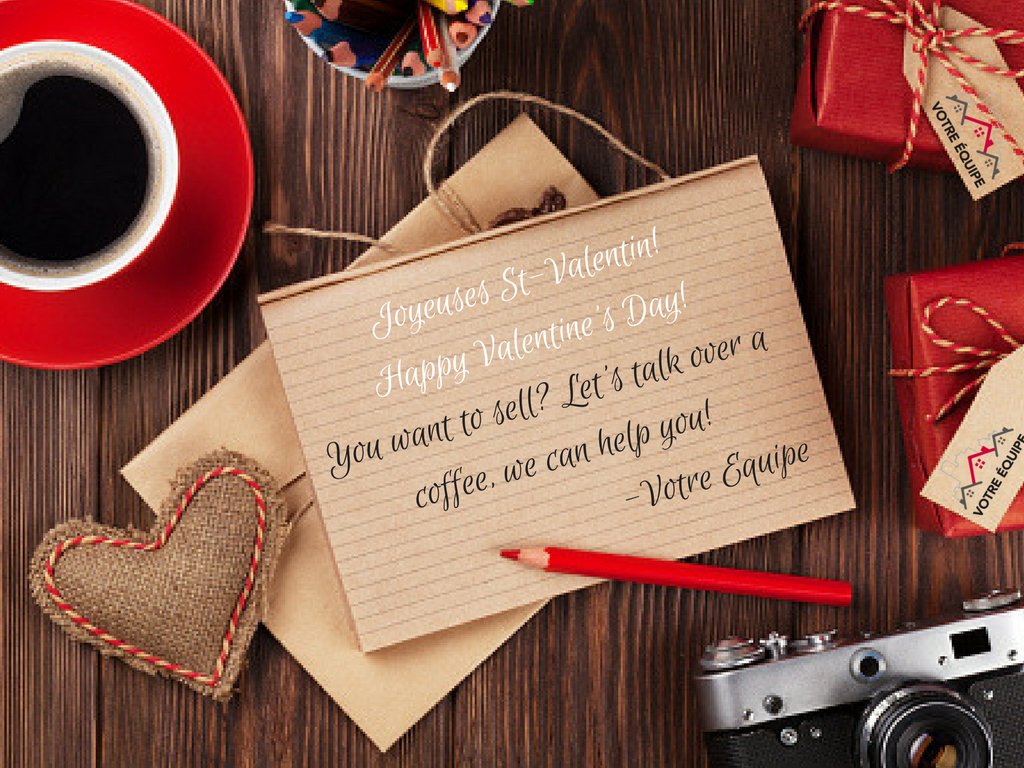 Joyeuses St-Valentin!
Happy Valentine's Day!
You want to sell? Let's talk over a
coffee, we can help you!
-Votre Equipe
VOTRE ÉQUIPE
VOTRE ÉQUIPE